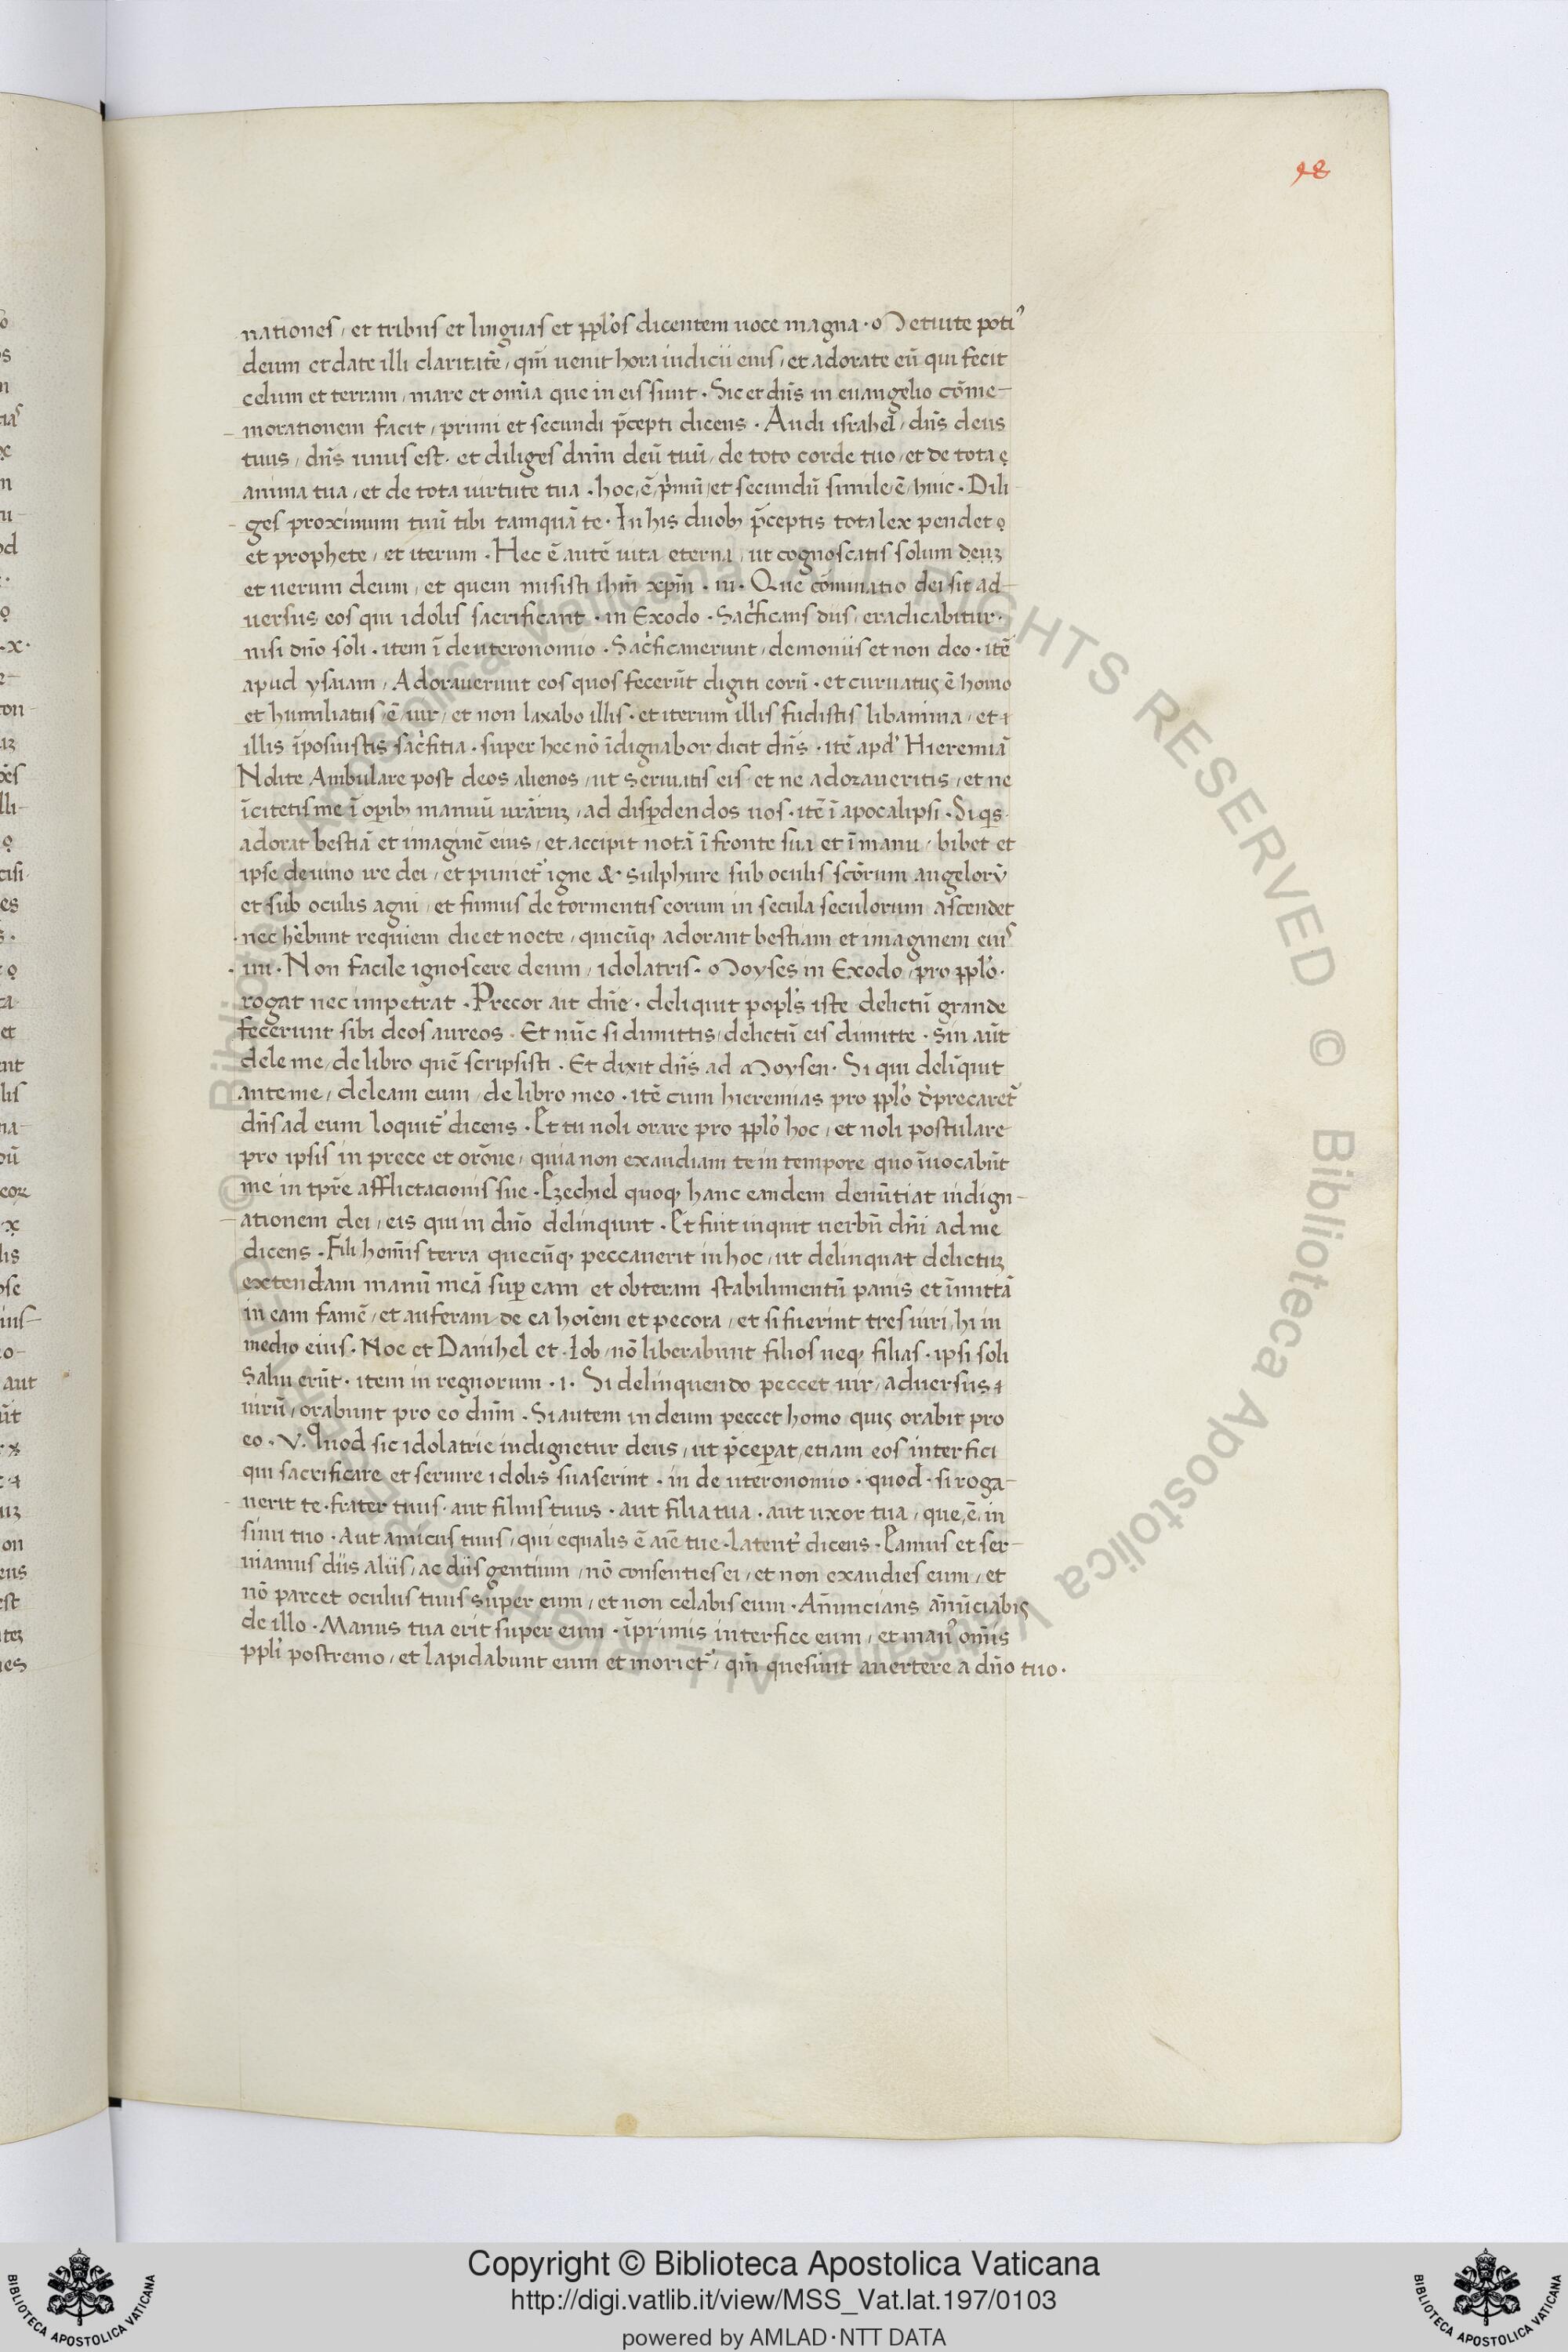 98
nationes, et tribus et linguas et ppl̄os dicentem uoce magna · Metuite poti᾽
deum et date illi claritatē, qm̄ uenit hora iudicii eius, et adorate eū qui fecit
celum et terram, mare et om̄ia que in eis sunt · Sic et dn̄s in euangelio cōme-
morationem facit, primi et secundi p̄cepti dicens · Audi israhel, dn̄s deus
tuus, dn̄s unus est · et diliges dnm̄ deū tuū, de toto corde tuo, et de tota
anima tua, et de tota uirtute tua · hoc ē p̍mū, et secundū simile ē huic · Dili
ges proximum tuū tibi tamquā te · In his duob; p̄ceptis tota lex pendet
et prophete, et iterum · Hec ē autē uita eterna, ut cognoscatis solum deuꝫ
et uerum deum, et quem misisti ihm̄ xpm̄ · iii · Que cōminatio dei sit ad-
uersus eos qui idolis sacrificant · in Exodo · Sac̍ficans diis, eradicabitur ·
nisi dn̄o soli · item ī deuteronomio · Sac̍ficauerunt, demoniis et non deo · itē
apud ysaiam, Adorauerunt eos quos fecerūt digiti eorū · et curuatus ē homo
et humiliatus ē uir, et non laxabo illis · et iterum illis fudistis libamina, et
illis īposuistis sac̍fitia · super hec nō īdignabor dicit dn̄s · itē apd᾽ Hieremiā
Nolite Ambulare post deos alienos, ut seruiatis eis et ne adoraueritis, et ne
īcitetis me ī opib; manuū ur̄aruꝫ, ad disꝑdendos uos · itē ī apocalipsi · Si q̍s
adorat bestiā et imaginē eius, et accipit notā ī fronte sua et ī manu, bibet et
ipse de uino ire dei, et puniet᾽ igne & sulphure sub oculis sc̄orum angelorū
et sub oculis agni, et fumus de tormentis eorum in secula seculorum ascendet
nec hēbunt requiem die et nocte, quicūq; adorant bestiam et imaginem eius
iiii · Non facile ignoscere deum, idolatris · Moyses in Exodo, pro ppl̄o ·
rogat nec impetrat · Precor ait dn̄e · deliquit popl̄s iste delictū grande
fecerunt sibi deos aureos · Et nūc si dimittis, delictū eis dimitte · Sin aūt
dele me, de libro quē scripsisti · Et dixit dn̄s ad Moysen · Si qui deliq̄uit
ante me, deleam eum, de libro meo · itē cum hieremias pro ppl̄o d̄precaret᾽
dn̄s ad eum loquit᾽ dicens · Et tu noli orare pro ppl̄o hoc, et noli postulare
pro ipsis in prece et orōne, quia non exaudiam te in tempore quo īuocabūt
me in tpr̄e afflictacionis sue · Ezechiel quoq; hanc eandem denūtiat indign-
ationem dei, eis qui in dn̄o delinqunt · Et fuit inquit uerbū dn̄i ad me
dicens · Fili hom̄is terra quecūq; peccauerit in hoc, ut delinquat delictuꝫ
extendam manū meā suꝑ eam et obteram stabilimentū panis et īmittā
in eam famē, et auferam de ea hoīem et pecora, et si fuerint tres uiri, hi in
medio eius · Noe et Danihel et · Iob, nō liberabunt filios neq; filias · ipsi soli
Salui erūt · item in regnorum · i · Si delinquendo peccet uir, aduersus
uirū, orabunt pro eo dnm̄ · Si autem in deum peccet homo quis orabit pro
eo · V · Quod sic idolatrie indignetur deus, ut p̄ceꝑat, etiam eos interfici
qui sacrificare et seruire idolis suaserint · in deuteronomio · quod · si roga-
uerit te · frater tuus · aut filius tuus · aut filia tua · aut uxor tua, que ē, in
sinu tuo · Aut amicus tuus, qui equalis ē aīe tue · Latent᾽ dicens · Eamus et ser-
uiamus diis aliis, ac diis gentium, nō consenties ei, et non exaudies eum, et
nō parcet oculus tuus super eum, et non celabis eum · An̄uncians an̄ūciabis
de illo · Manus tua erit super eum · īprimis interfice eum, et man᾽ om̄is
ppl̄i postremo, et lapidabunt eum et moriet᾽, qm̄ quesiuit auertere a dn̄o tuo ·
© Biblioteca Apostolica Vaticana ALL RIGHTS RESERVED
Copyright © Biblioteca Apostolica Vaticana
http://digi.vatlib.it/view/MSS_Vat.lat.197/0103
powered by AMLAD·NTT DATA
BIBLIOTECA APOSTOLICA VATICANA
BIBLIOTECA APOSTOLICA VATICANA